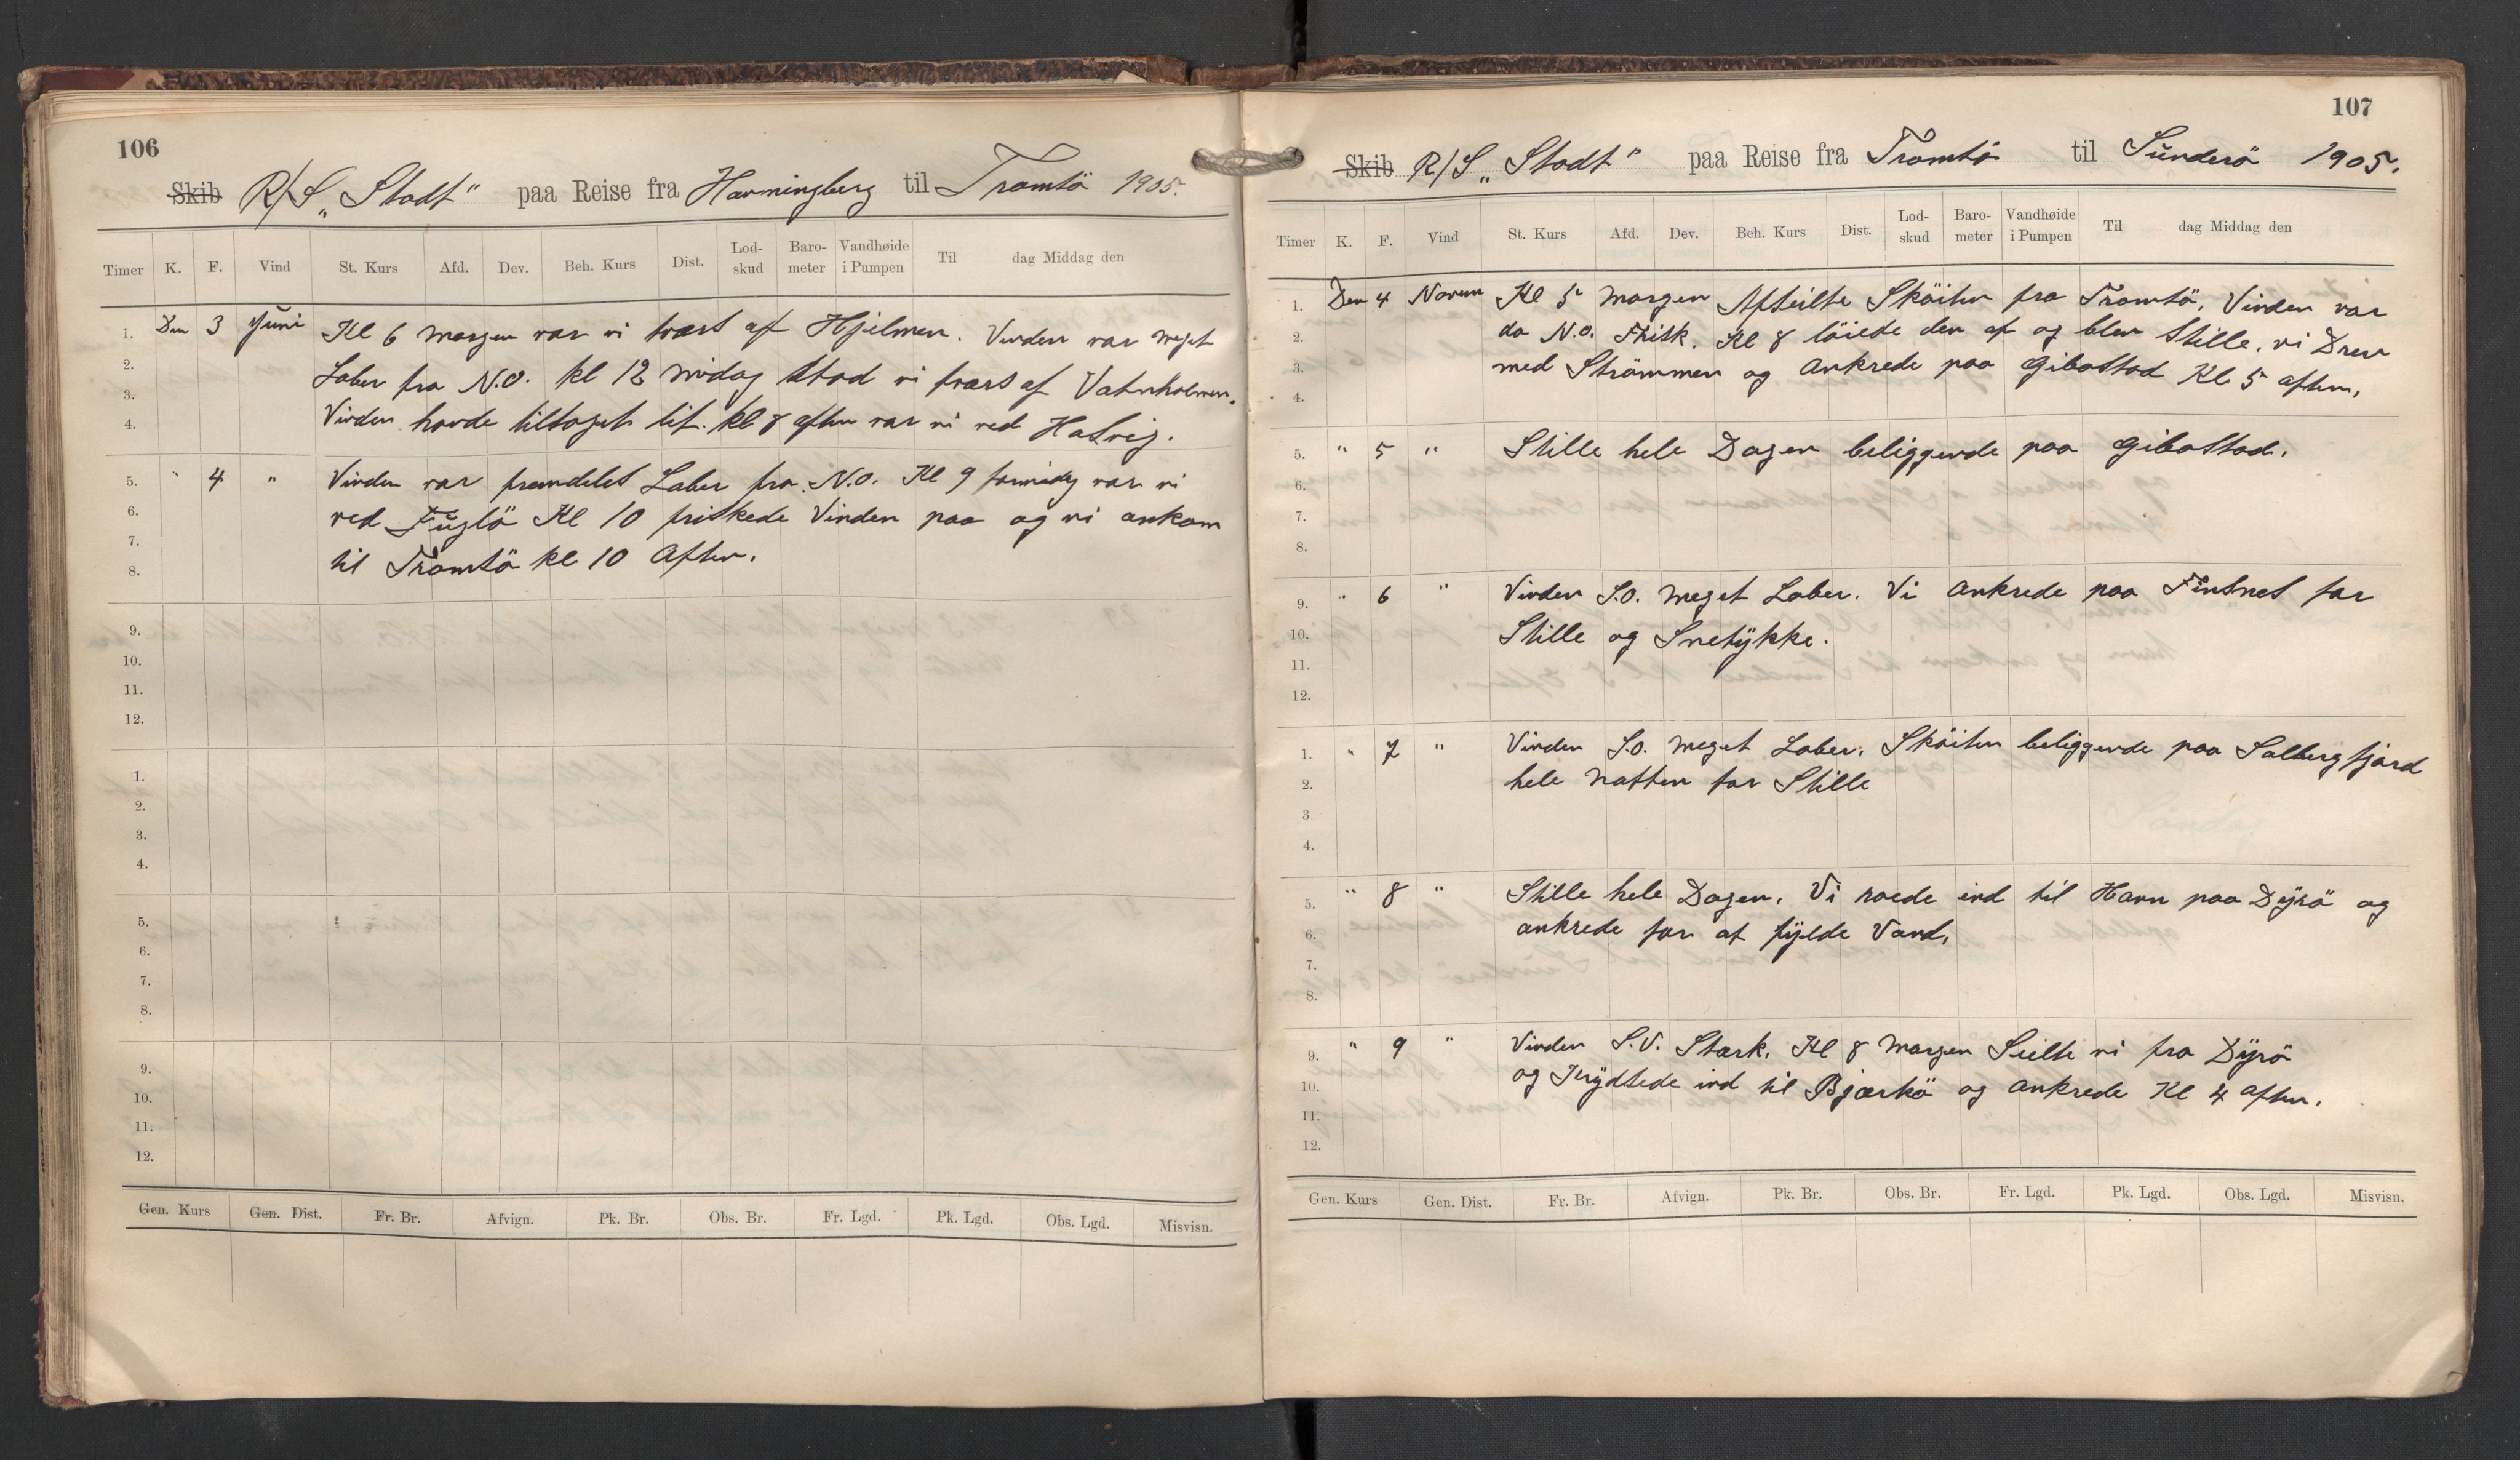 106
Skib R/S „Stadt" paa Reise fra Havningberg til Tromsö 1905.
Timer K. F. Vind St. Kurs Afd. Dev. Beh. Kurs Dist. Lod-skud Baro-meter Vandhøide i Pumpen Til dag Middag den
1. Den 3 Juni Kl 6 morgen var vi tvært af Hjelmen. Vinden var meget
2. Laber fra N.O. kl 12 midag stod vi tværs af Vatnholmen.
3. Vinden havde tiltaget lit. kl 8 aften var vi ved Hasvig.
4.
5. " 4 " Vinden var fremdeles Laber fra N.O. Kl 9 formidag var vi
6. ved Fuglö Kl 10 friskede Vinden paa og vi ankom
7. til Tromsö kl 10 Aften.
8.
9.
10.
11.
12.
1.
2.
3.
4.
5.
6.
7.
8.
9.
10.
11.
12.
Gen. Kurs Gen. Dist. Fr. Br. Afvign. Pk. Br. Obs. Br. Fr. Lgd. Pk. Lgd. Obs. Lgd. Misvisn.
107
Skib R/S „Stadt" paa Reise fra Tromsö til Sunderö 1905.
Timer K. F. Vind St. Kurs Afd. Dev. Beh. Kurs Dist. Lod-skud Baro-meter Vandhøide i Pumpen Til dag Middag den
1. Den 4 Novem Kl 5 morgen Afseilte Sköiten fra Tromsö, Vinden var
2. da N.O. Frisk. Kl 8 löiede den af og blev Stille, vi Drev
3. med Strömmen og ankrede paa Gibostad Kl 5 aften,
4.
5. " 5 " Stille hele Dagen beliggende paa Gibostad.
6.
7.
8.
9. " 6 " Vinden S.O. meget Laber. Vi ankrede paa Finsnes for
10. Stille og Snetykke.
11.
12.
1. " 7 " Vinden S.O. meget Laber. Sköiten beliggende paa Salbergfjord
2. hele natten for Stille
3
4.
5. " 8 " Stille hele Dagen. Vi roede ind til Havn paa Dyrö og
6. ankrede for at fylde Vand,
7.
8.
9. " 9 " Vinden S.V. Stærk. Kl 8 morgen Seilte vi fra Dyrö
10. og Krydsede ind til Bjærkö og ankrede Kl 4 aften.
11.
12.
Gen. Kurs Gen. Dist. Fr. Br. Afvign. Pk. Br. Obs. Br. Fr. Lgd. Pk. Lgd. Obs. Lgd. Misvisn.